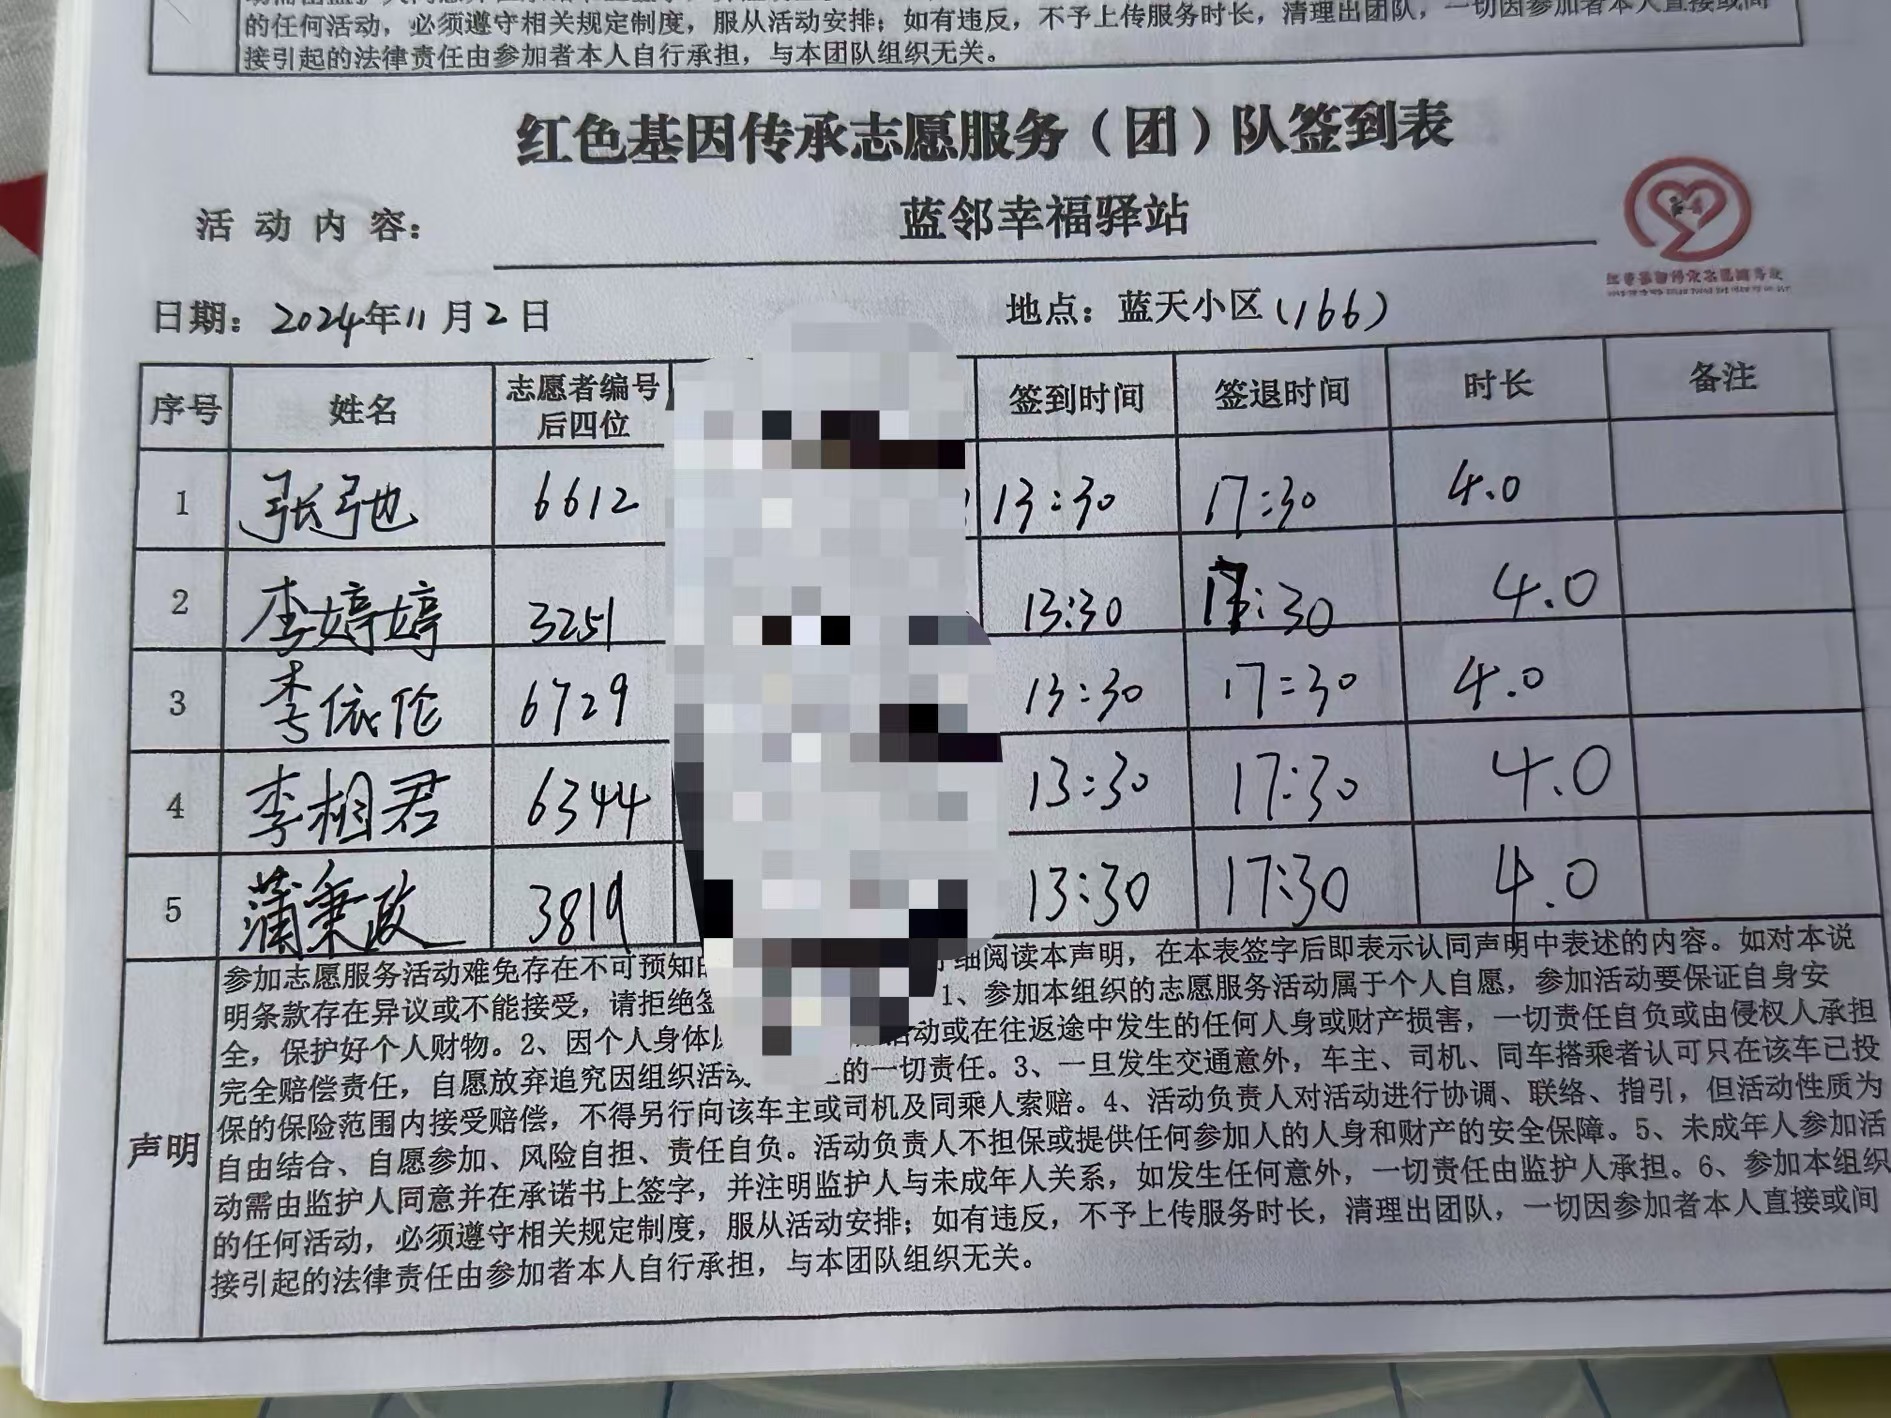 的任何活动，必须遵守相关规定制度，服从活动安排；如有违反，不予上传服务时长，清理出团队，一切因参加者本人直接或间
接引起的法律责任由参加者本人自行承担，与本团队组织无关。
红色基因传承志愿服务（团）队签到表
活动内容： 蓝邻幸福驿站
日期：2024年11月2日 地点：蓝天小区(166)
序号 姓名 志愿者编号后四位 签到时间 签退时间 时长 备注
1 张弛 6612 13:30 17:30 4.0
2 李婷婷 3251 13:30 17:30 4.0
3 李依伦 6729 13:30 17:30 4.0
4 李相君 6344 13:30 17:30 4.0
5 蒲秉政 3819 13:30 17:30 4.0
声明
参加志愿服务活动难免存在不可预知的 细阅读本声明，在本表签字后即表示认同声明中表述的内容。如对本说
明条款存在异议或不能接受，请拒绝签 1、参加本组织的志愿服务活动属于个人自愿，参加活动要保证自身安
全，保护好个人财物。2、因个人身体 活动或在往返途中发生的任何人身或财产损害，一切责任自负或由侵权人承担
完全赔偿责任，自愿放弃追究因组织活动 的一切责任。3、一旦发生交通意外，车主、司机、同车搭乘者认可只在该车已投
保的保险范围内接受赔偿，不得另行向该车主或司机及同乘人索赔。4、活动负责人对活动进行协调、联络、指引，但活动性质为
自由结合、自愿参加、风险自担、责任自负。活动负责人不担保或提供任何参加人的人身和财产的安全保障。5、未成年人参加活
动需由监护人同意并在承诺书上签字，并注明监护人与未成年人关系，如发生任何意外，一切责任由监护人承担。6、参加本组织
的任何活动，必须遵守相关规定制度，服从活动安排；如有违反，不予上传服务时长，清理出团队，一切因参加者本人直接或间
接引起的法律责任由参加者本人自行承担，与本团队组织无关。